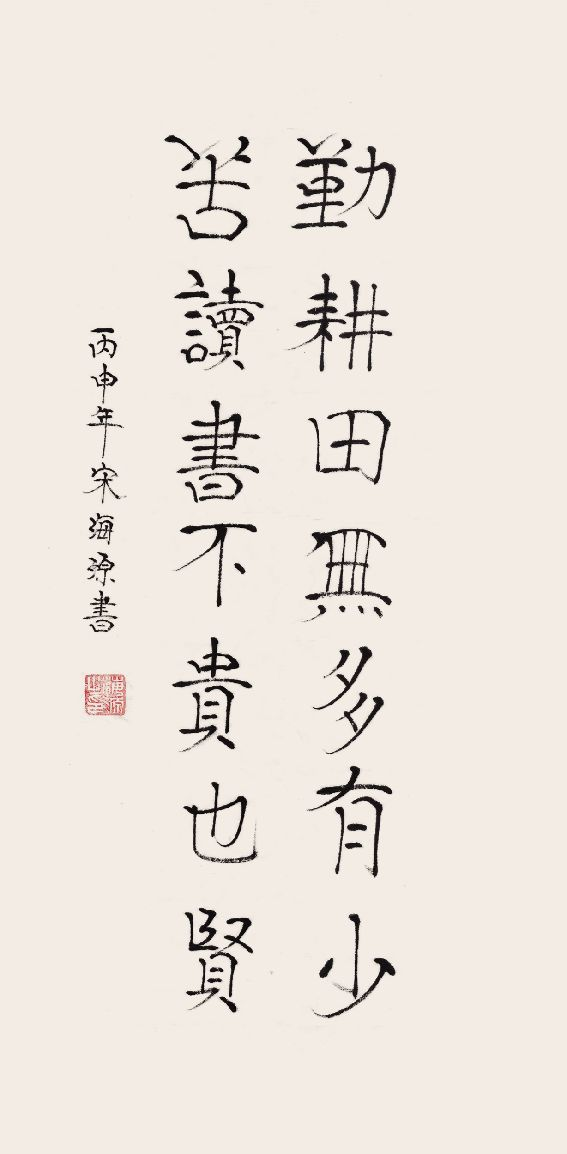 勤耕田無多有少
苦讀書不貴也賢
丙申年宋海源書